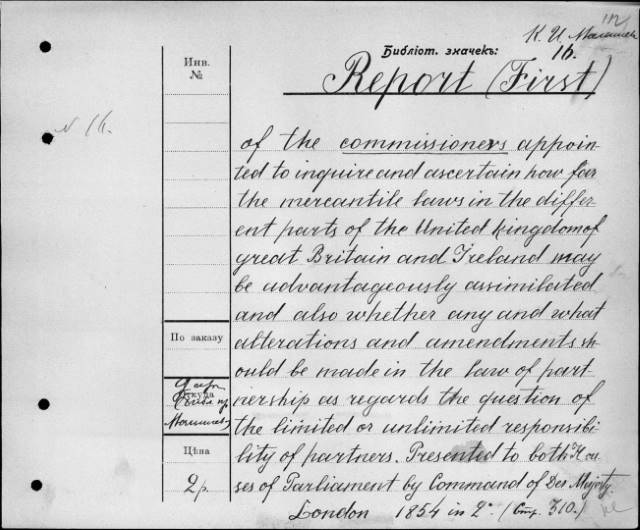 К. И. Малышев
Библіот. значекъ:
16.
Инв.
№
Report (First)
N 16.
of the commissioners appoin
ted to inquire and ascertain how far
the mercantile laws in the differ
ent parts of the United kingdom of
great Britain and Ireland may
be advantageously assimilated
and also whether any and what
alterations and amendments sh
ould be made in the law of part
nership as regards the question of
the limited or unlimited responsibi
lity of partners. Presented to both Hou
ses of Parliament by Command of Her Majesty.
London 1854 in 2° (Стр. 310.)
По заказу
Откуда
Малышев
Цѣна
2 р.